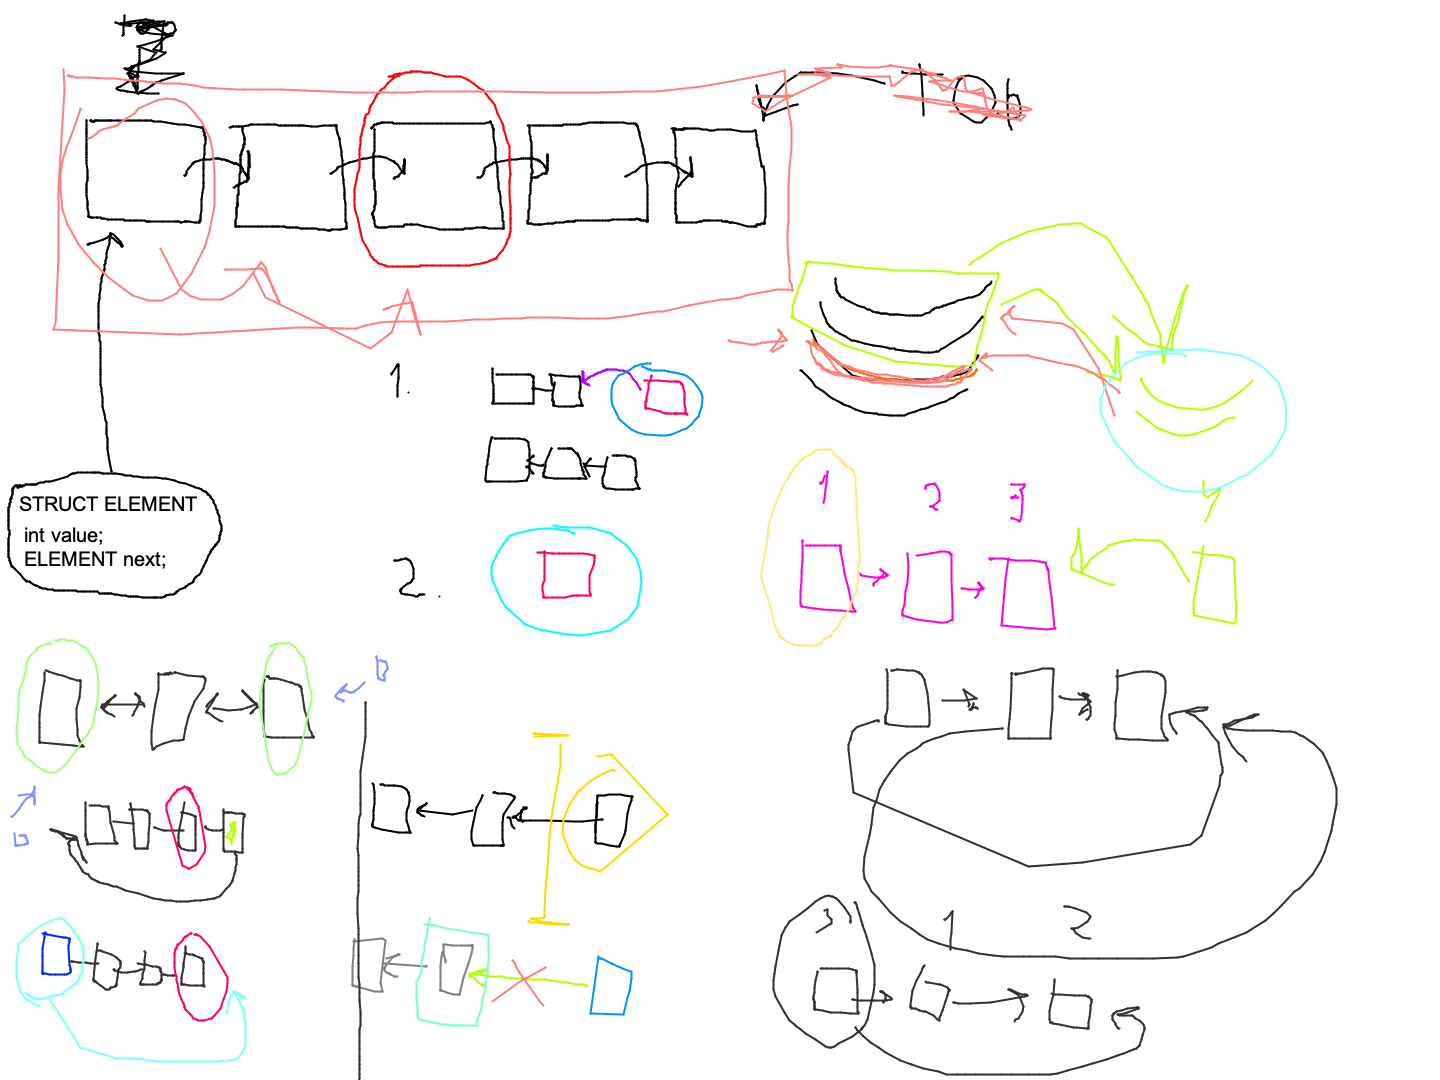 1.
STRUCT ELEMENT
int value;
ELEMENT next;
2.
1 2 3
3 1 2